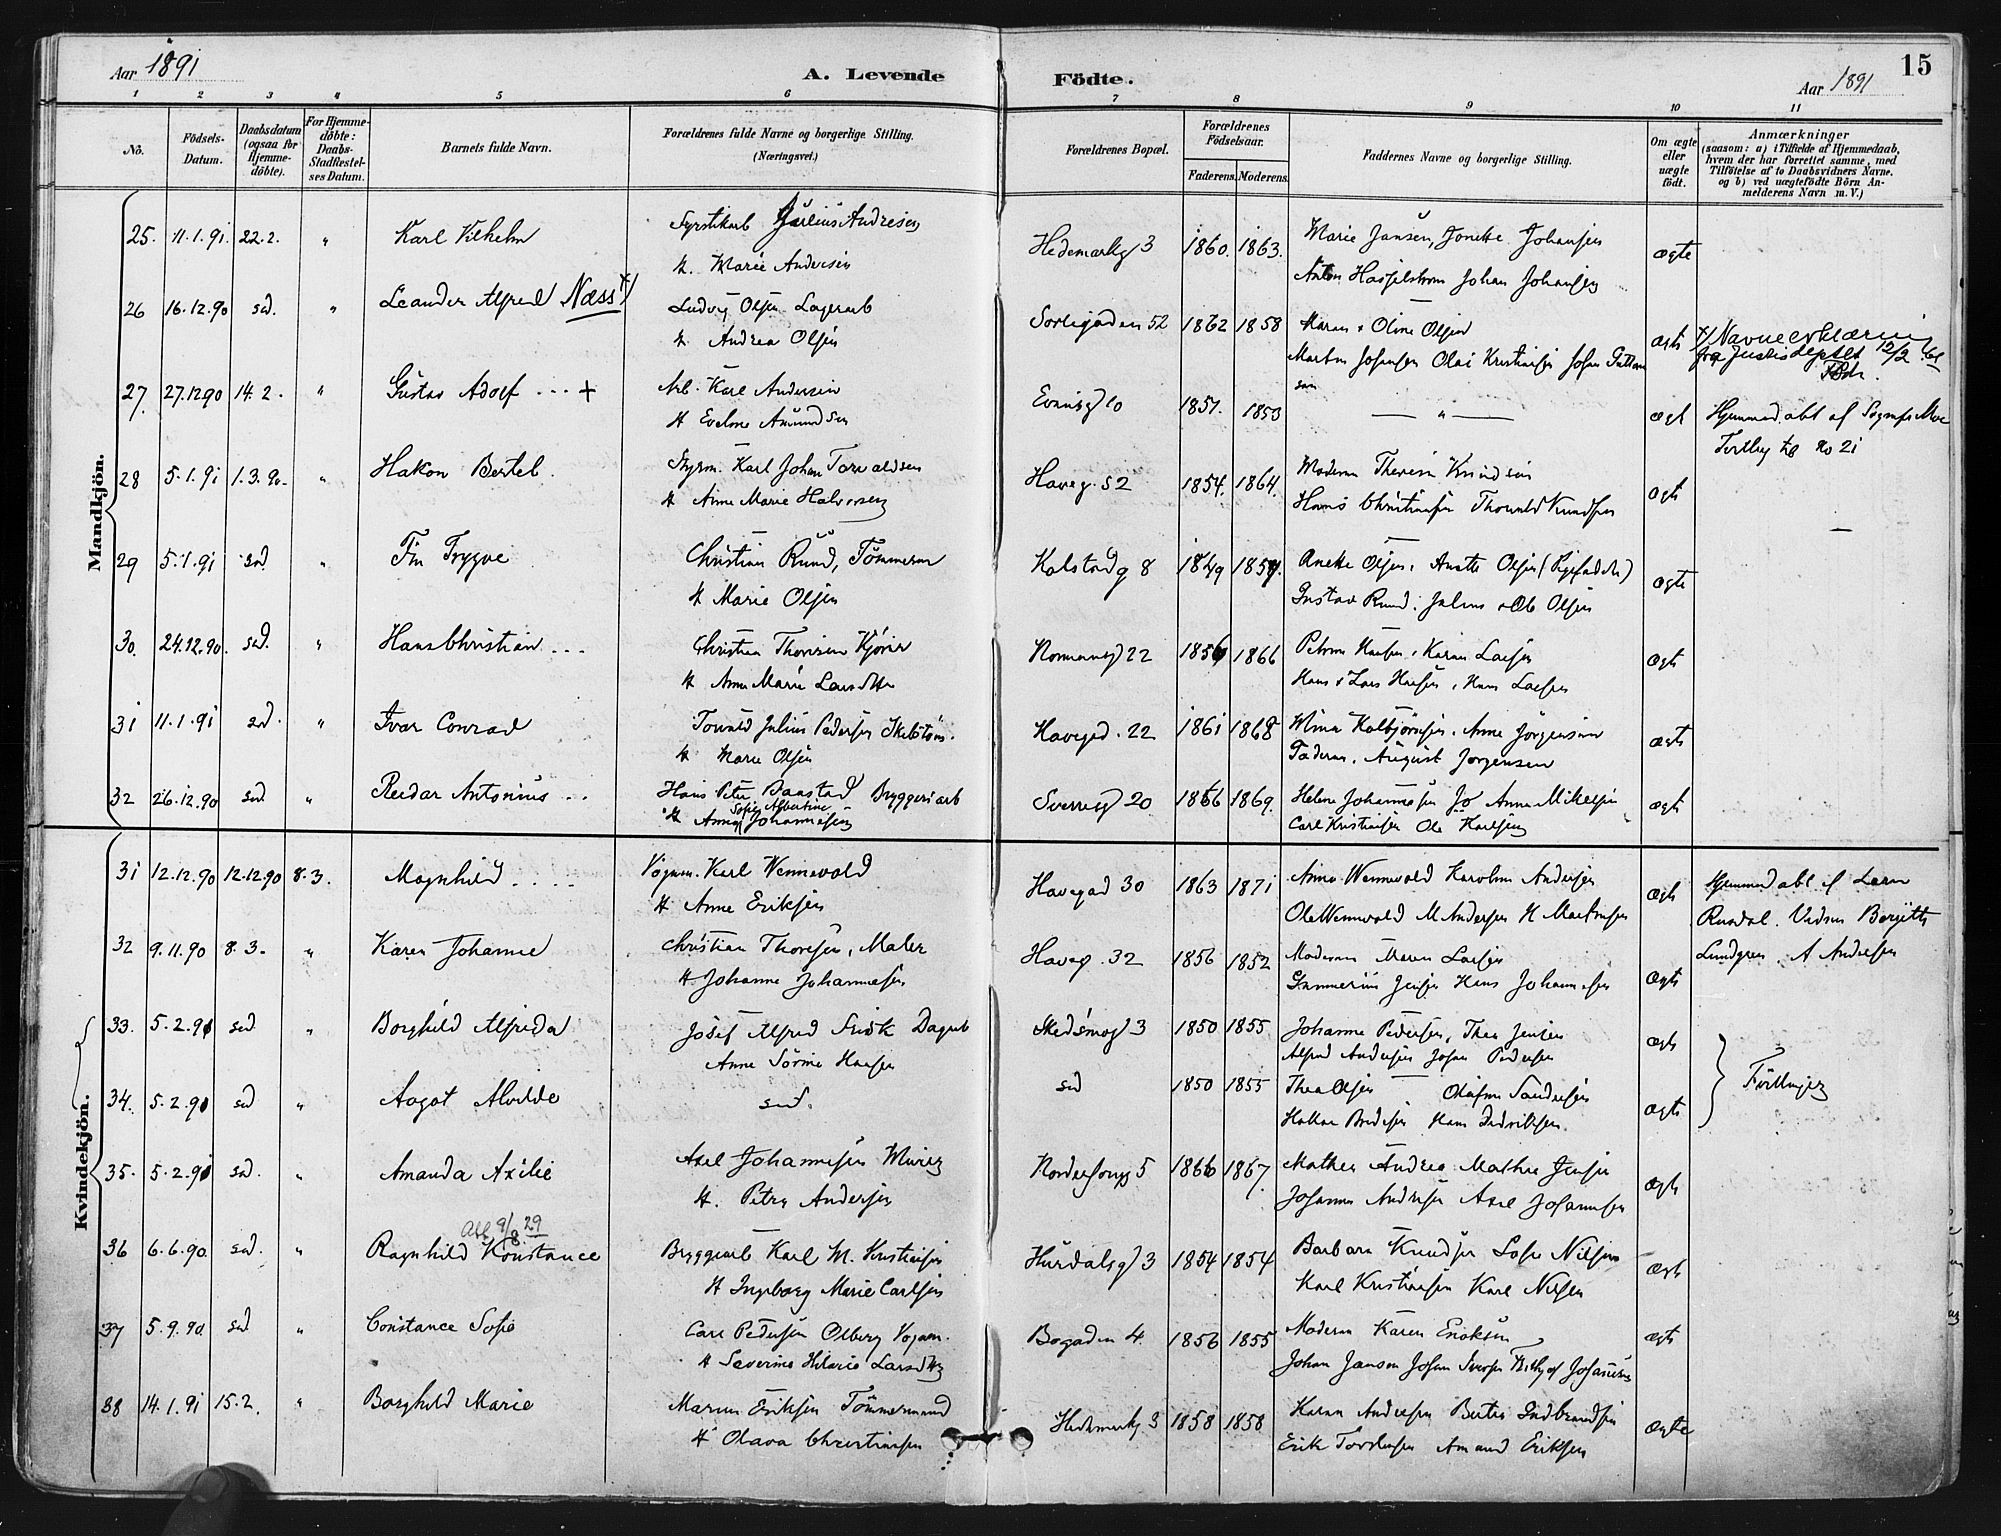 Aar 1891
A. Levende Födte.
15
Aar 1891
1 2 3 4 5 6 7 8 9 10 11
No.
Födsels-
Datum.
Daabsdatum
(ogsaa for
Hjemme-
döbte).
For Hjemme-
döbte:
Daabs-
Stadfæstel-
ses Datum.
Barnets fulde Navn.
Forældrenes fulde Navne og borgerlige Stilling.
(Næringsvei.)
Forældrenes Bopæl.
Forældrenes
Födselsaar.
Faderens. Moderens.
Faddernes Navne og borgerlige Stilling.
Om ægte
eller
uægte
födt.
Anmærkninger
(saasom: a) i Tilfælde af Hjemmedaab,
hvem der har forrettet samme, med
Tilföielse af to Daabsvidners Navne.
og b) ved uægtefödte Börn An-
melderens Navn m. V.)
Mandkjön.
25. 11.1.91. 22.2. " Karl Vilhelm Julius Andresen
H. Marie Andersen
Hedemarkg 3 1860. 1863. Marie Jansen, Johansen
Anton Hasselstrøm Johan Johansen
ægte
26 16.12.90 sd. " Leander Alfred Næss x)
Ludvig Olsen Lagerarb
H. Andrea Olsen
Sorligaden 52 1862 1858 Maren & Oline Olsen
Morten Johansen Olai Kristiansen Johan
ægte
x/ Navneerklæring
fra Justisdeptet 12/2
27. 27.12.90 14.2. " Gustav Adolf - - - +
Arb. Karl Andersen
H Eveline Amundsen
10 1851. 1853 — " —
ægt
Hjemmedøbt af
Tvilling til No 21
28 5.1.91 1.3.90. " Hakon Bertel.
Styrm. Karl Johan Torvaldsen
H Anne Marie Halvorsen
Haveg. 52 1854. 1864. Moderen Therese Knudsen
Hans Christiansen Thorvald Knudsen
ægt
29 5.1.91 sd. " Fin Trygve
Christian Ruud, Tømmerm
H Marie Olsen
Kalstadg 8 1849 Olsen, Anette Olsen
Gustav Ruud. Julius & Ole Olsen
ægte
30. 24.12.90. sd. " Hans Christian - - -
Christian Thoresen Kjører
H Anne Marie Larsdtr
Normannsg 22 1866 Hansen, Karen Larsen
Hans & Lars Hansen, Hans Larsen
ægt
31 11.1.91 sd. " Ivar Conrad
Torvald Julius Pedersen
H. Marie Olsen
Havegd. 22 1861 1868 Anne Jørgensen
Faderen. August Jørgensen
ægte
32 26.12.90 sd. " Reidar Antonius - -
Hans Peter Baastad Bryggeriarb
Sofie Albertine
H Anne Johannesen
Sverreg 20 1866 1869. Helene Johannesen Jo Anne Mikelsen
Carl Kristiansen Ole Karlsen
ægt
Kvindekjön.
31 12.12.90 12.12.90 8.3. Magnhild - - - -
Vognm. Karl Wennevold
H Anne Eriksen
Havegad 30 1863 1871 Anna Wennevold Karoline Andersen
Ole Wennevold M Andersen H Martinsen
ægt
Hjemmedøbt af
Lundgren. A Andersen
32 9.11.90 8.3. " Karen Johanne
Christian Thoresen, Maler
H. Johanne Johannesen
Haveg. 32 1856 1852 Moderen Maren Larsen
Jensen Hans Johannesen
ægte
33. 5.2.91 sd " Borghild Alfrida
Josef Alfred
Anne Sørine Hansen
Skedsmog 3 1850 1855 Johanne Pedersen, Thea Jensen
Alfred Andersen Johan Pedersen
ægt
34. 5.2.91 sd " Aagot Alvilde
sd.
sd 1850 1855 Thea Olsen Sandersen
ægte
Tvillinger
35. 5.2.91 sd. " Amanda Axilie
Axel Johannesen Murer
H. Petra Andersen
5 1866 1867 Mathea Andrea Mathea Jensen
Andersen Axel Johannesen
ægt
36 6.6.90 sd. " Ragnhild Konstance
9/8.29
Bryggearb Karl M. Kristiansen
H Ingeborg Marie Carlsen
Hurdalsg 3 1854 1854 Barbara Knudsen Sofie Nilsen
Karl Kristiansen Karl Nilsen
ægt
37 5.9.90. sd " Constance Sofie
Carl Pedersen Olberg Vognm.
H Severine Hilarie Larsdtr
Bogaden 4. 1856 1855 Moderen Karen Eriksen
Johan Janson Johan
ægt
38 14.1.91 15.2. " Borghild Marie
Eriksen Tømmermand
H Olava Christiansen
Hedemarkg 3 1858 1858 Karen Andersen
Erik Amund Eriksen
ægte